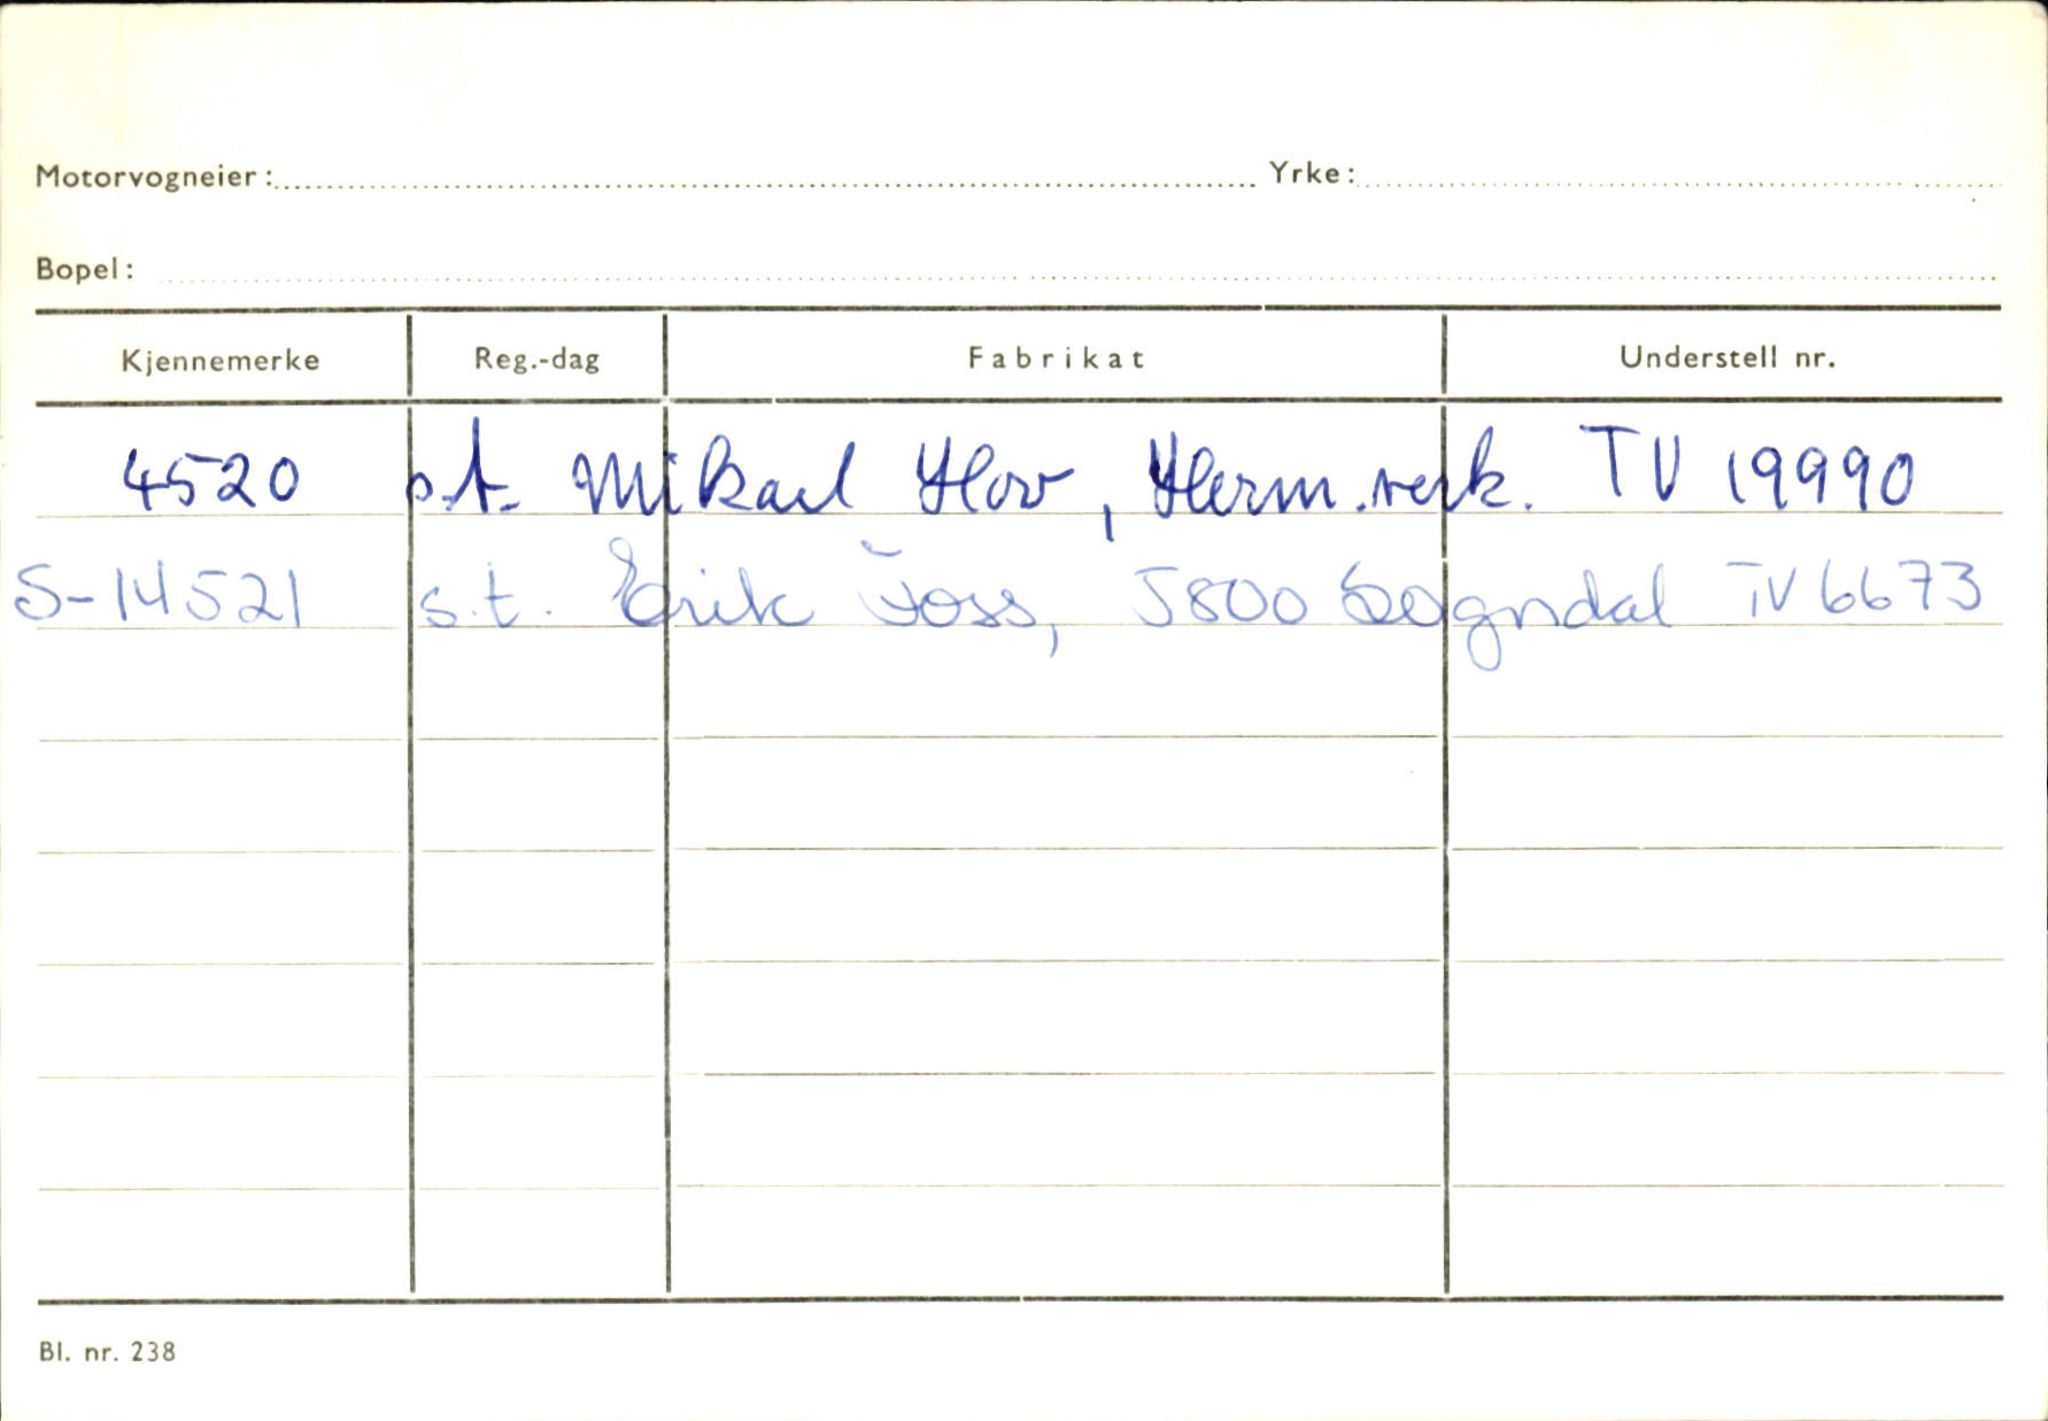 Motorvogneier: Yrke:
Bopel:
Kjennemerke Reg.-dag Fabrikat Understell nr.
4520 s.t. Mikael Hov, Herm.verk. TV 19990
S-14521 s.t. Erik Foss, 5800 Sogndal TV 6673
Bl. nr. 238